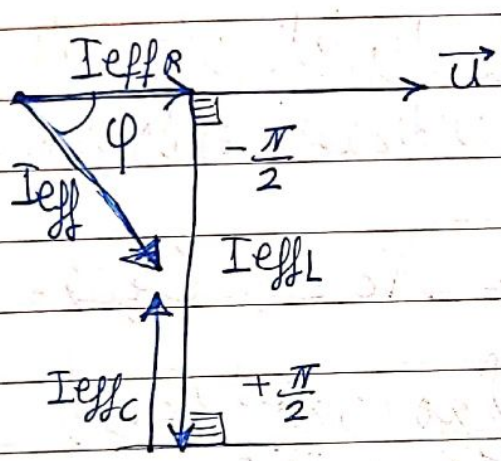 I eff R
u
φ
- π/2
I eff
I eff L
I eff C
+ π/2